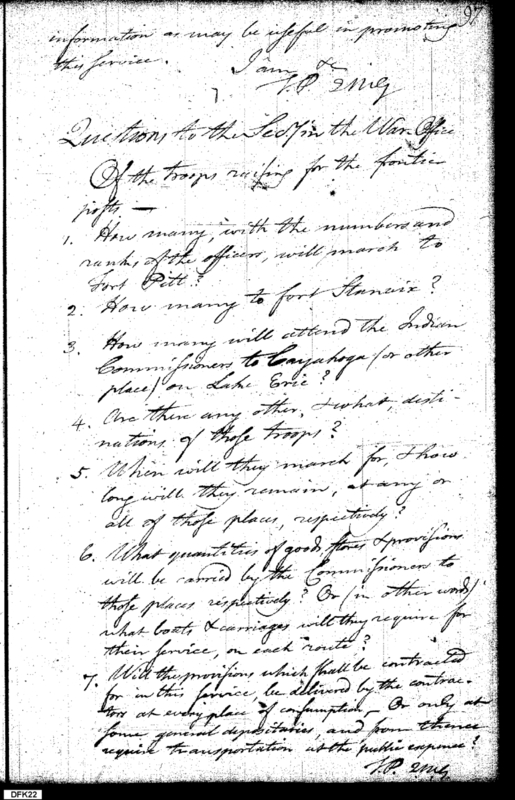 97
information as may be useful in promoting
this service.
I am &c
T.P. QMG
Questions to the Secy in the War Office
Of the troops raising for the frontier
posts —
1. How many, with the numbers and
ranks of the officers, will march to
Fort Pitt?
2. How many to fort Stanwix?
3. How many will attend the Indian
Commissioners to Cayahoga (or other
place) on Lake Erie?
4. Are there any other, & what, desti-
nations of those troops?
5. When will they march for, & how
long will they remain, at any or
all of those places, respectively?
6. What quantities of goods, stores & provisions
will be carried by the Commissioners to
those places respectively? Or (in other words)
what boats & carriages will they require for
their service, on each route?
7. Will the provisions which shall be contracted
for in this service, be delivered by the contrac-
tors at every place of consumption, — Or only at
some general depositaries, and from thence
require transportation at the public expence?
T.P. QMG
DFK22